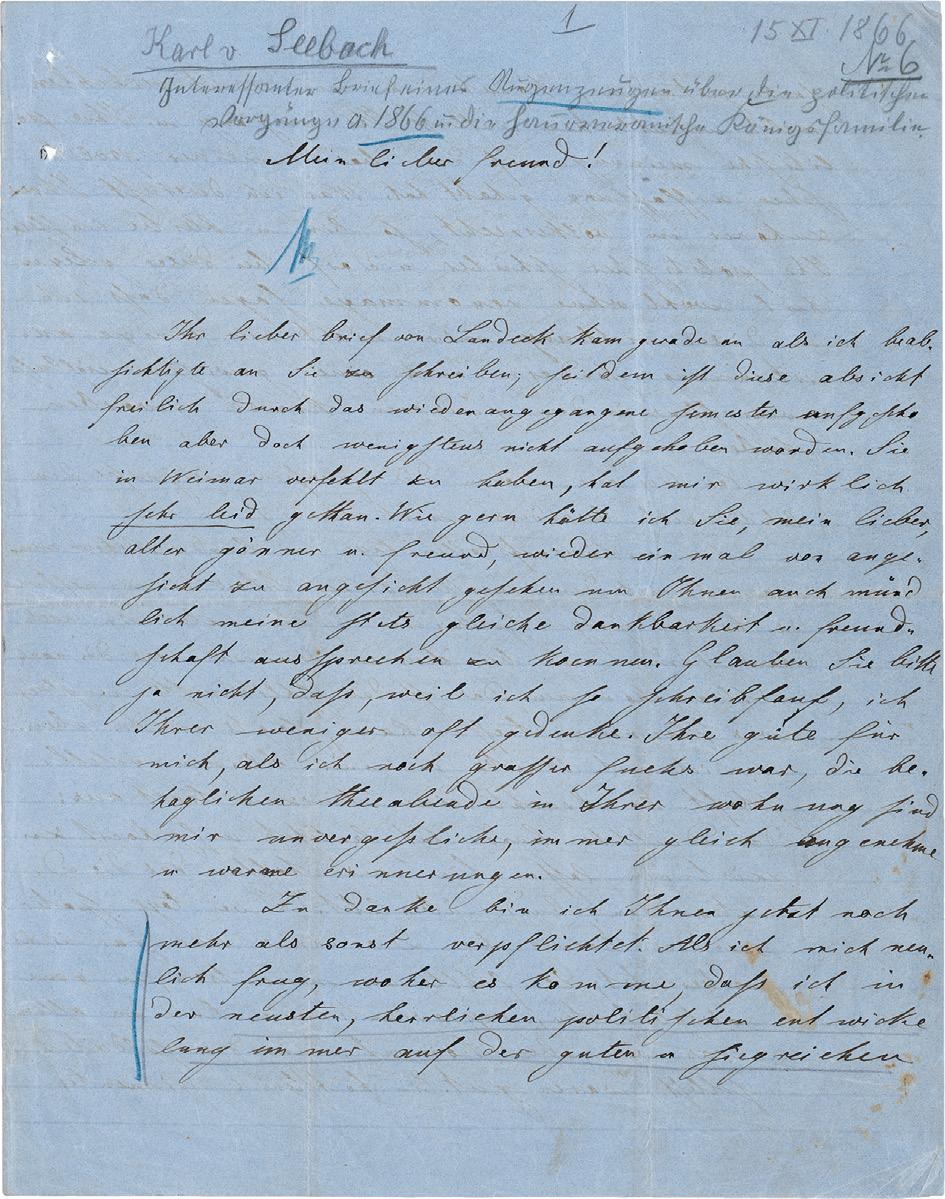 1
15 XI. 1866
Karl v Seebach
No 6
Interessanter Brief eines Augenzeugen über die politischen
Vorgänge a. 1866 u. die hannoveranische Königsfamilie.
Mein lieber freund!
Ihr lieber brief von Landeck kam gerade an als ich beab-
sichtigte an Sie zu schreiben; seitdem ist diese absicht
freilich durch das wiederangegangene semester aufgescho
ben aber doch wenigstens nicht aufgehoben worden. Sie
in Weimar verfehlt zu haben, hat mir wirklich
sehr leid gethan. Wie gern hätte ich Sie, mein lieber,
alter gönner u. freund, wieder einmal von ange-
sicht zu angesicht gesehen um Ihnen auch münd
lich meine stets gleiche dankbarkeit u. freund-
schaft aussprechen zu koennen. Glauben Sie bitte
ja nicht, dass, weil ich so schreibfaul, ich
Ihrer weniger oft gedenke. Ihre güte für
mich, als ich noch grasser fuchs war, die be-
haglichen theeabende in Ihrer wohnung sind
mir unvergessliche, immer gleich angenehme
u warme erinnerungen.
Zu danke bin ich Ihnen jetzt noch
mehr als sonst verpflichtet. Als ich mich neu-
lich frug, woher es komme, dass ich in
der neusten, herrlichen politischen entwicke
lung immer auf der guten u siegreichen